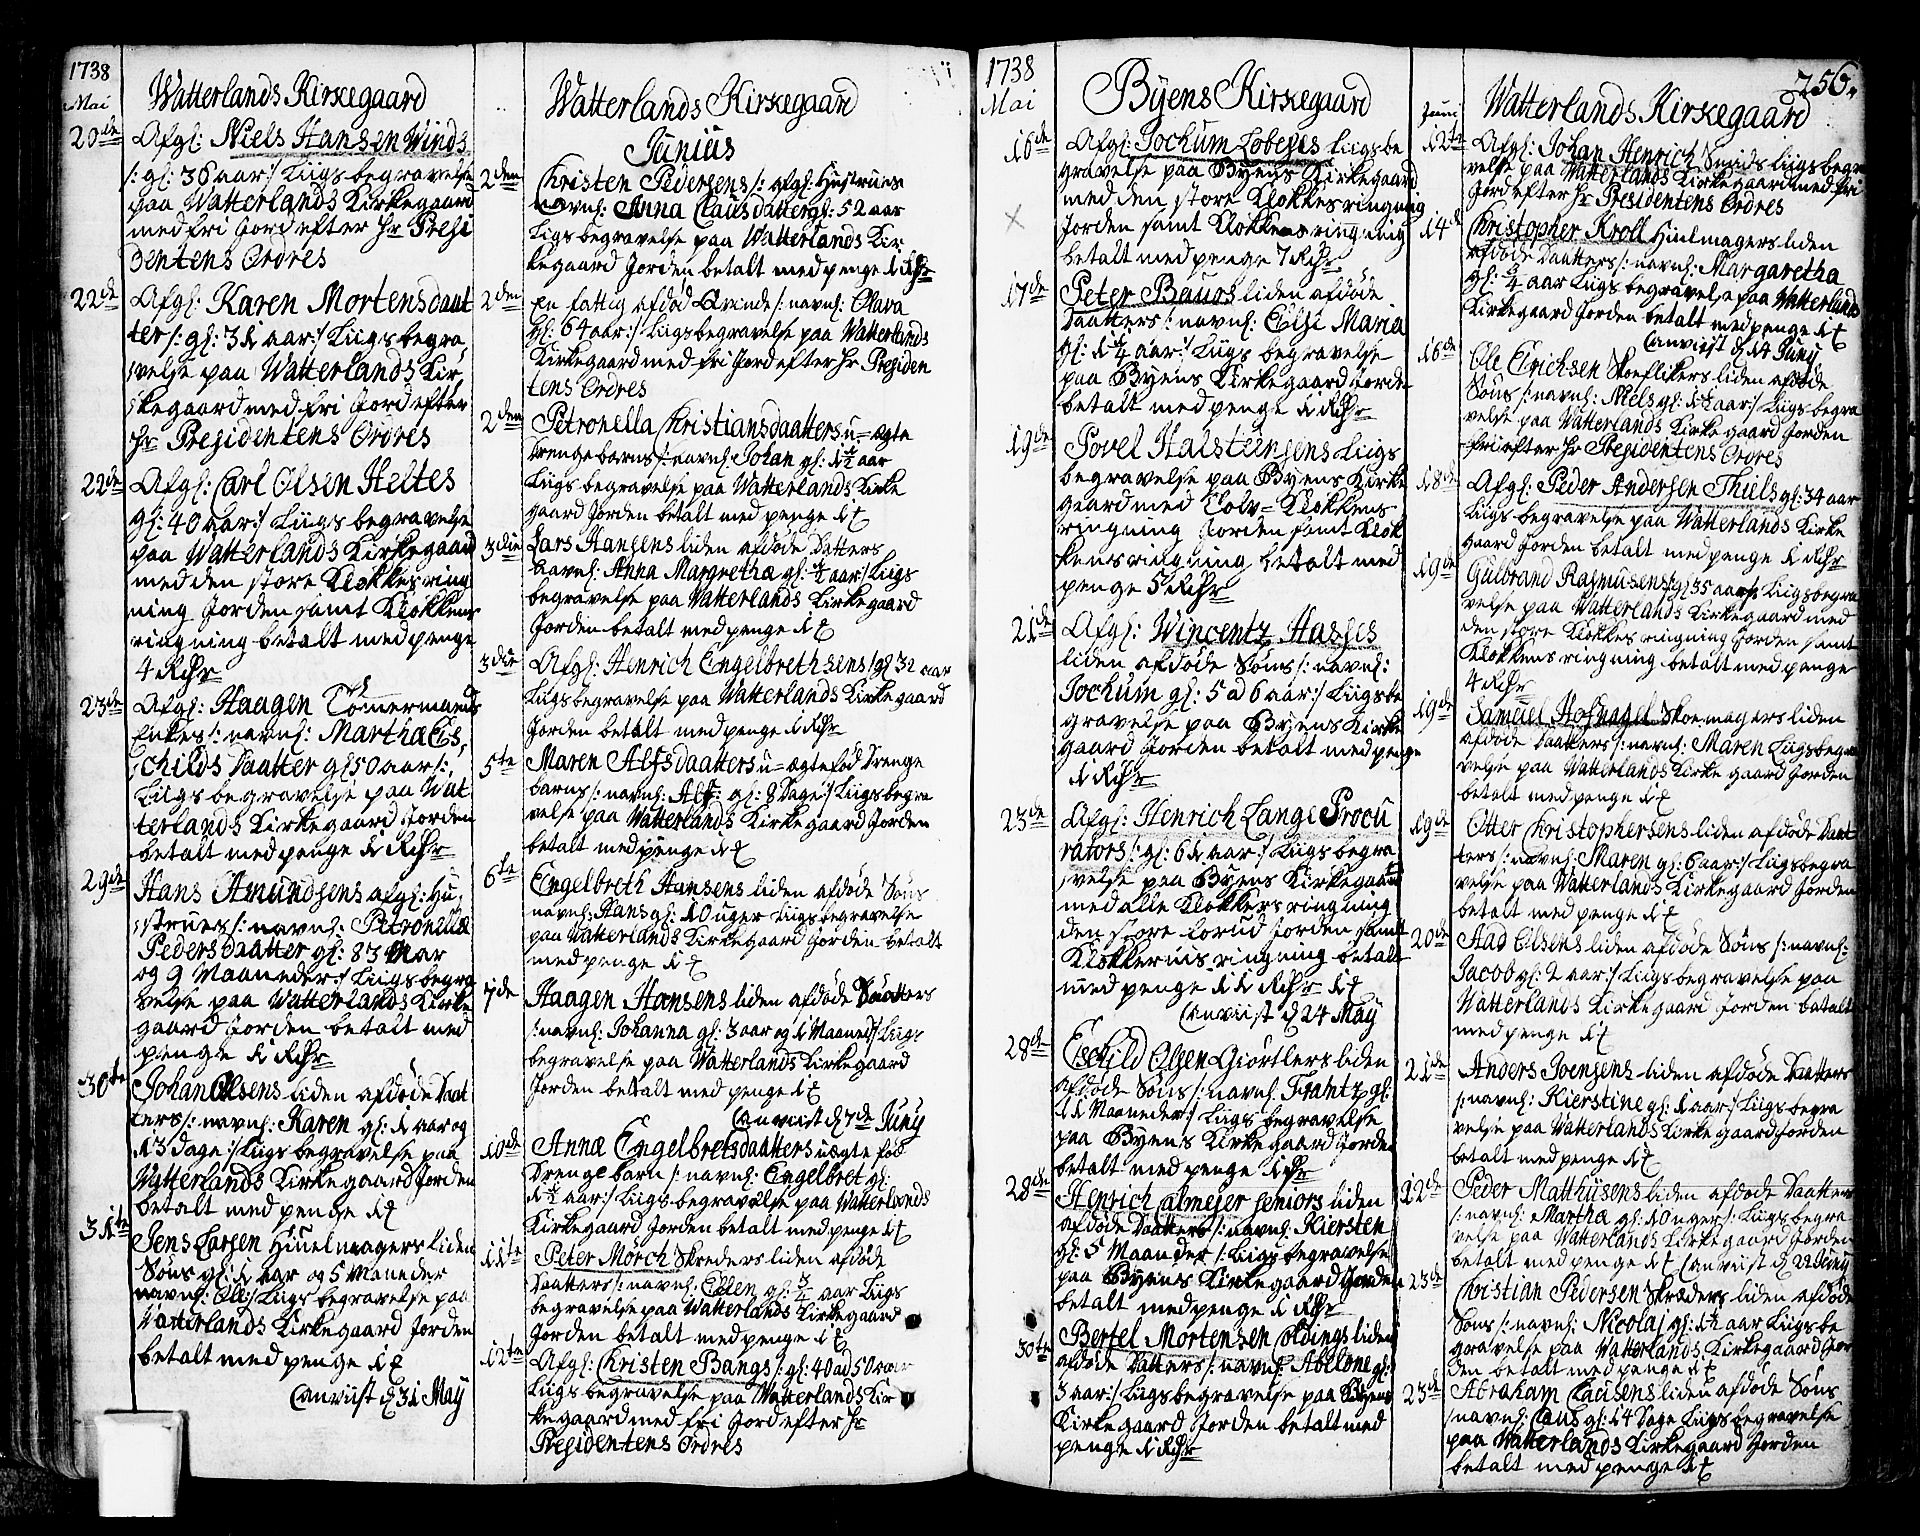 1738
Mai
Watterlands Kirkegaard
20de Afgl: Niels Hansen Winds
/: gl: 36 aar:/ Liigs begravelse
paa Watterlands Kirkegaard
med fri Jord efter Hr Presi
dentens Ordres
22de Afgl: Karen Mortensdaat
ter /: gl: 31 aar:/ Liigs begra
velse paa Watterlands Kir
kegaard med fri Jord efter
Hr Presidentens Ordres
22de Afgl: Carl Olsen Heltes
gl: 40 aar:/ Liigs begravelse
paa Watterlands Kirkegaard
med den store Klokkes ring
ning Jorden samt Klokkens
ringning betalt med penge
4 Rdr
23de Afgl: Haagen Tømermands
Enkes /: navnl: Martha Es
childs Daatter gl: 50 aar /:
Liigs begravelse paa Wat
terlands Kirkegaard Jorden
betalt med penge 1 Rdr
29de Hans Amundsens afgl: Hu
strues /: navnl: Petronella
Pedersdaatter gl: 83 Aar
og 9 Maaneder:/ Liigs begra
velse paa Watterlands Kirke
gaard Jorden betalt med
penge 1 Rdr
30te Johan Olsens liden afdøde Daat
ters /: navnl: Karen gl: 1 aar og
13 dage:/ Liigs begravelse paa
Watterlands Kirkegaard Jorden
betalt med penge 1 ƭ
31te Jens Larsen Hiuelmagers liden
Søns gl: 1 aar og 5 Maneder
navnl: Ole:/ Liigs begravelse paa
Watterlands Kirkegaard Jorden
betalt med penge 1 ƭ
Anviist d 31 May
Watterlands Kirkegaard
Junius
2den Christen Pedersens /: afgl: Hustrues
navnl: Anna Clausdatter gl: 52 aar
Ligs begravelse paa Watterlands Kir
kegaard Jorden betalt med penge 1 Rdr
2den En fattig afdød Qvinde /: navnl: Olava
gl: 64 aar:/ Liigs begravelse paa Watterlands
Kirkegaard med fri Jord efter Hr Presiden
tens Ordres
2den Petronella Christiansdaatters u=ægte
Drenge barns /: navnl: Johan gl: 1 1/2 aar
Liigs begravelse paa Watterlands Kirke
gaard Jorden betalt med penge 1 ƭ
3die Lars Hansens liden afdøde Datters
navnl: Anna Margretha gl: aar:/ Liigs
begravelse paa Watterlands Kirkegaard
Jorden betalt med penge 1 ƭ
3die Afgl: Henrich Engelbrethsens /: gl 32 aar
Liigs begravelse paa Watterlands Kirkegaard
Jorden betalt med penge 1 Rdr
5te Maren Alfsdaatters u=ægtefød Drenge
barns /: navnl: Alf: gl: 8 Dage:/ Liigs begra
velse paa Watterlands Kirkegaard Jorden
betalt med penge 1 ƭ
6te Engelbreth Hansens liden afdøde Søns
navnl: Hans gl: 10 uger Liigs begravelse
paa Watterlands Kirkegaard Jorden betalt
med penge 1 ƭ
7de Haagen Hansens liden afdøde Daatters
/: navnl: Johanna gl: 3 aar og 1 Maaned:/ Liigs
begravelse paa Watterlands Kirkegaard
Jorden betalt med penge 1 ƭ
Anviist d 7de Juny
10de Anna Engelbretsdaatters uægte fød
Drenge barn /: navnl: Engelbret gl:
1 1/2 aar:/ Liigs begravelse paa Watterlands
Kirkegaard Jorden betalt med penge 1 ƭ
11te Peter Mörch Skreders liden afdøde
Daatters /: navnl: Ellen gl: aar Liigs
begravelse paa Watterlands Kirkegaard
Jorden betalt med penge 1 ƭ
12te Afgl: Christen Bangs /: gl: 40 ad 50 aar
Liigs begravelse paa Watterlands Kir
kegaard med fri Jord efter Hr
Presidentens Ordres
1738
Mai
Byens Kirkegaard
16de Afgl: Jochum Lobeses Liigs be
gravelse paa Byens Kirkegaard
med den store Klokkes ringning
Jorden samt Klokkens ringning
betalt med penge 7 Rdr
17de Peter Bauers liden afdøde
Daatters /: navnl: Elsi Maria
gl: 1 1/4 aar:/ Liigs begravelse
paa Byens Kirkegaard Jorden
betalt med penge 1 Rdr
19de Povel Halsteensens Liigs
begravelse paa Byens Kirke
gaard med Tolv=Klokkens
ringning Jorden samt Klok
kens ringning betalt med
penge 5 Rdr
21de Afgl: Wincentz Hasses
liden afdøde Søns /: navnl:
Jochum gl: 5 ad 6 aar:/ Liigs be
gravelse paa Byens Kirke
gaard Jorden betalt med penge
1 Rdr
23de Afgl: Henrich Lange Procu
rators /: gl: 61 aar:/ Liigs begra
velse paa Byens Kirkegaard
med alle Klokkers ringning
den store forud Jorden samt
Klokkernis ringning betalt
med penge 11 Rdr 1 ƭ
Anviist d 24 May
28de Eschild Olsen Giørtlers liden
afdøde Søns /: navnl: Frantz gl:
11 Maaneder:/ Liigs begravelse
paa Byens Kirkegaard Jorden
betalt med penge 1 Rdr
28de Henrich Calmejer Seniors liden
afdøde Daatters /: navnl: Kiersten
gl: 5 Maander /: Liigs begravelse
paa Byens Kirkegaard Jorden
betalt med penge 1 Rdr
30te Bertel Mortensen Coldings liden
afdøde Datters /: navnl: Abelone gl:
3 aar:/ Liigs begravelse paa Byens
Kirkegaard Jorden betalt med
penge 1 Rdr
256.
Juni
Watterlands Kirkegaard
12te Afgl: Johan Henrich Smids Liigs begra
velse paa Watterlands Kirkegaard med fri
Jord efter Hr Presidentens Ordres
14de Christopher Kroll Hiulmagers liden
afdøde Daatters /: navnl: Margaretha
gl: aar Liigs begravelse paa Watterlands
Kirkegaard Jorden betalt med penge 1 ƭ
Anviist d 14 Juny
16de Ole Erichsen Skoeflikers liden afdøde
Søns /: navnl: Niels gl: 1 1/2 aar:/ Liigs begra
velse paa Watterlands Kirkegaard Jorden
fri efter Hr Presidentens Ordres
18de Afgl: Peder Andersen Thuls gl: 34 aar
Liigs begravelse paa Watterlands Kirke
gaard Jorden betalt med penge 1 Rdr
19de Gulbrand Rasmusens /: gl 35 aar:/ Liigs begra
velse paa Watterlands Kirkegaard med
den store Klokkes ringning Jorden samt
Klokkens ringning betalt med penge
4 Rdr
19de Samuel Hofnagel Skoemagers liden
afdøde Daatters /: navnl: Maren Liigs begra
velse paa Watterlands Kirkegaard Jorden
betalt med penge 1 ƭ
19de Otter Christophersens liden afdøde Daat
ters /: navnl: Maren gl: 6 aar:/ Liigs begra
velse paa Watterlands Kirkegaard Jorden
betalt med penge 1 ƭ
20de Aad Olsens liden afdøde Søns /: navnl:
Jacob gl: 2 aar:/ Liigs begravelse paa
Watterlands Kirkegaard Jorden betalt
med penge 1 ƭ
21de Anders Joensens liden afdøde Daatters
/: navnl: Kierstine gl: 1 aar:/ Liigs begra
velse paa Watterlands Kirkegaard Jorden
betalt med penge 1 ƭ
22de Peder Matthiisens liden afdøde Daatters
/: navnl: Martha gl: 10 uger /: Liigs begra
velse paa Watterlands Kirkegaard Jorden
betalt med penge 1 ƭ Anviist d 22 Juny
23de Christian Pedersen Skræders liden afdøde
Søns /: navnl: Nicolaj gl: 1 1/2 aar Liigs be
gravelse paa Watterlands Kirkegaard Jor
den betalt med penge 1 ƭ
23de Abraham Clausens liden afdøde Søns
/: navnl: Claus gl: 14 Dage Liigs begravelse
paa Watterlands Kirkegaard Jorden
betalt med penge 1 ƭ